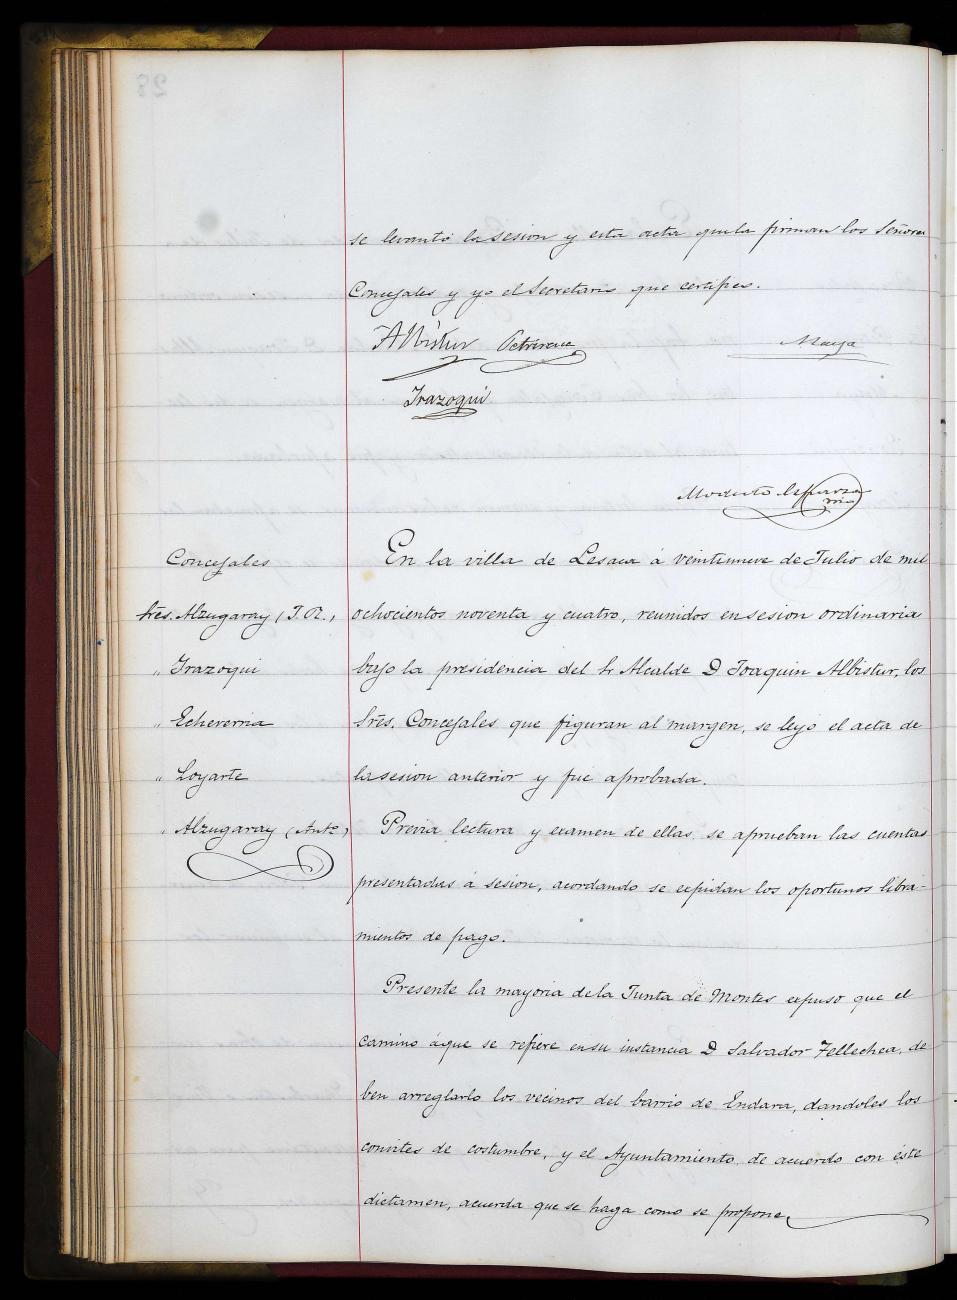 se levantó la sesion y esta acta que la firman los Señores
Concejales y yo el Secretario que certifico.
Albistur Echeverria Maya
Irazoqui
Modesto Esparza
En la villa de Lesaca á veintinueve de Julio de mil
ochocientos noventa y cuatro, reunidos en sesion ordinaria
bajo la presidencia del Sr Alcalde D Joaquin Albistur, los
Sres. Concejales que figuran al margen, se leyó el acta de
la sesion anterior y fue aprobada.
Previa lectura y examen de ellas, se aprueban las cuentas
presentadas á sesion, acordando se expidan los oportunos libra-
mientos de pago.
Presente la mayoria de la Junta de Montes expuso que el
camino áque se refiere en su instancia D Salvador Tellechea, de
ben arreglarlo los vecinos del barrio de Endara, dandoles los
convites de costumbre, y el Ayuntamiento de acuerdo con éste
dictamen, acuerda que se haga como se propone.
Concejales
Sres. Alzugaray (J. R.)
" Irazoqui
" Echeverria
" Loyarte
" Alzugaray (Anto)
28